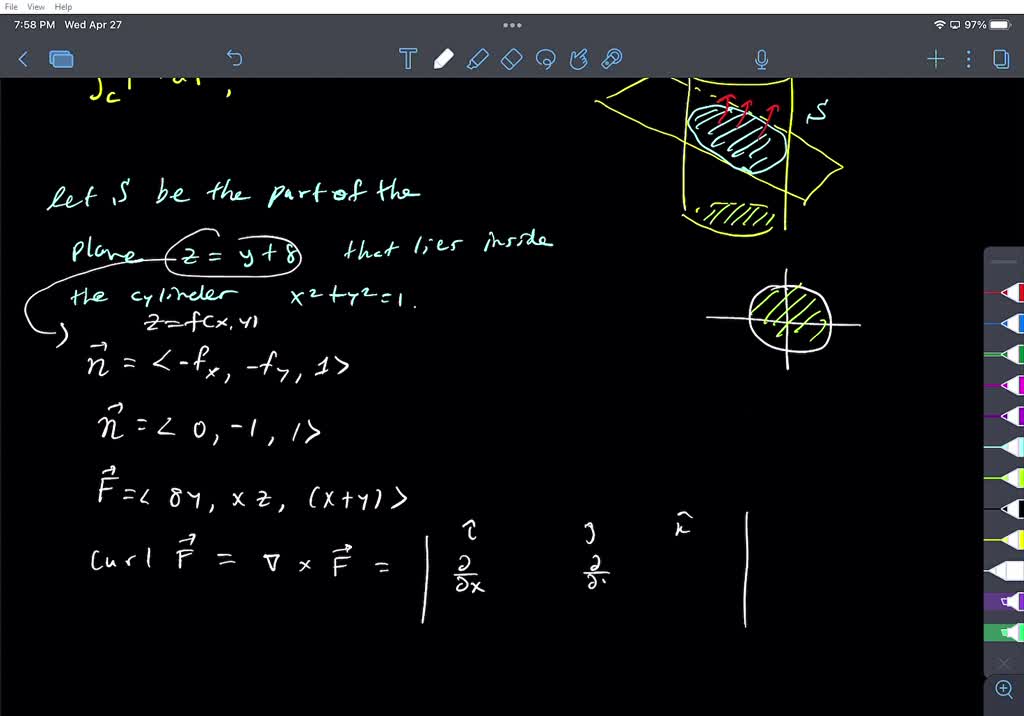 File View Help
7:58 PM Wed Apr 27
97%
T
S
Let S be the part of the
plane z = y+8 that lies inside
the cylinder x²+y²=1.
z=f(x,y)
n⃗ = <-fₓ, -f_y, 1>
n⃗ = < 0, -1, 1>
F⃗ = < 8y, xz, (x+y) >
Curl F⃗ = ∇ × F⃗ = | î ĵ k̂ |
∂/∂x ∂/∂